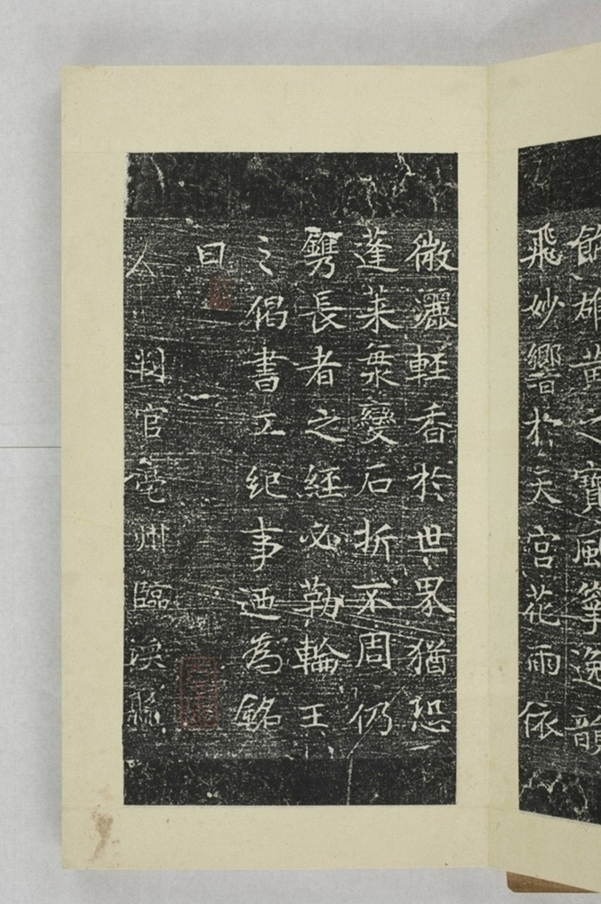 飾雄黄之寶風箏逸韻
飛妙響於天宮花雨依
微灑軽香於世界猶恐
蓬莱桒變石折不周仍
鐫長者之經必勒輪王
之偈書工紀事迺為銘
曰
判官亳州臨渙縣